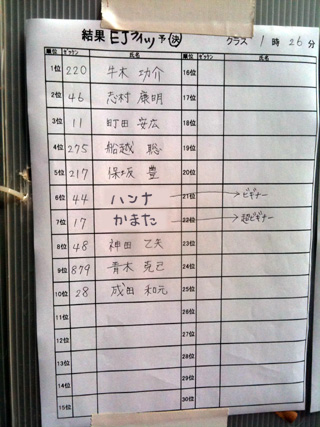 結果 EJライツ 予 決 クラス 1時26分
順位 ゼッケン 氏名 順位 ゼッケン 氏名
1位 220 牛木 功介 16位
2位 46 志村 康明 17位
3位 11 町田 安広 18位
4位 275 船越 聡 19位
5位 217 保坂 豊 20位
6位 44 ハンナ 21位 ビギナー
7位 17 かまた 22位 超ビギナー
8位 48 神田 乙矢 23位
9位 879 青木 克己 24位
10位 28 成田 和元 25位
11位 26位
12位 27位
13位 28位
14位 29位
15位 30位